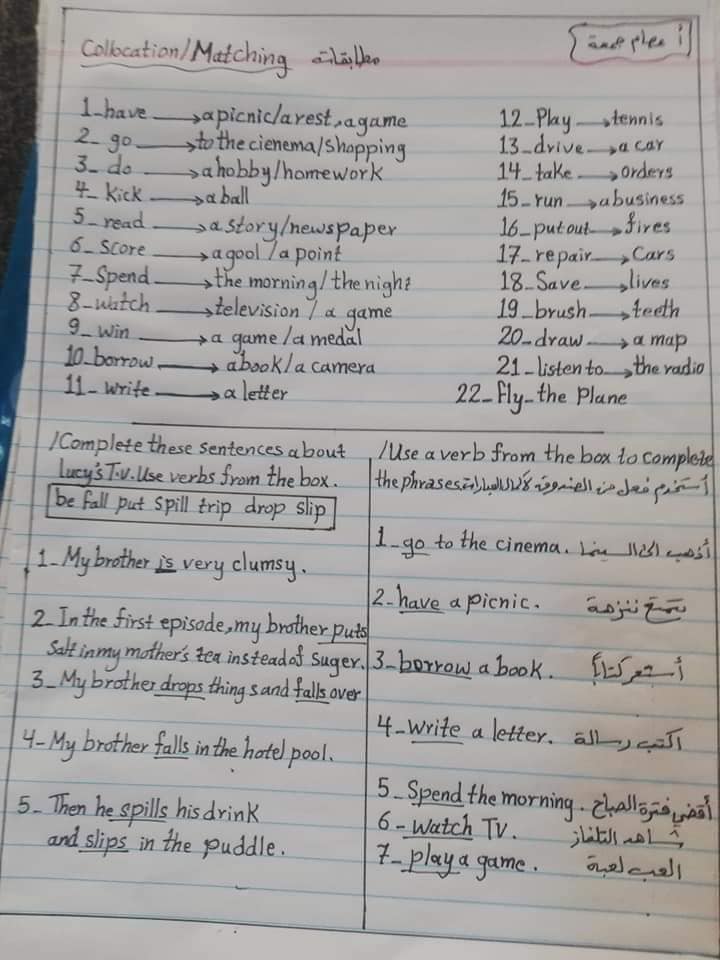 Collocation/Matching مطابقات
1_have → a picnic/a rest, a game
2_ go → to the cienema/shopping
3_ do → a hobby/homework
4_ kick → a ball
5_ read → a story/newspaper
6_ Score → a gool/a point
7_ Spend → the morning/the night
8_ watch → television / a game
9_ win → a game/a medal
10_borrow → a book/a camera
11_ write → a letter
12_Play → tennis
13_ drive → a car
14_ take → orders
15_ run → a business
16_ put out → fires
17_ repair → Cars
18_ Save → lives
19_ brush → teeth
20_ draw → a map
21_ listen to → the radio
22_ fly_ the Plane
/Complete these sentences about
Lucy's T.V. Use verbs from the box.
be fall put spill trip drop slip
1_ My brother is very clumsy.
2_ In the first episode, my brother puts
Salt in my mother's tea instead of suger.
3_ My brother drops things and falls over
4_ My brother falls in the hotel pool.
5_ Then he spills his drink
and slips in the puddle.
/Use a verb from the box to complete
the phrases. أستخدم فعل من الصندوق
1_ go to the cinema. أذهب الى السينما
2_ have a picnic.
3_ borrow a book. أستعر كتاباً
4_ write a letter. اكتب رسالة
5_ Spend the morning. أقضي فترة الصباح
6_ watch TV. شاهد التلفاز
7_ play a game. العب لعبة